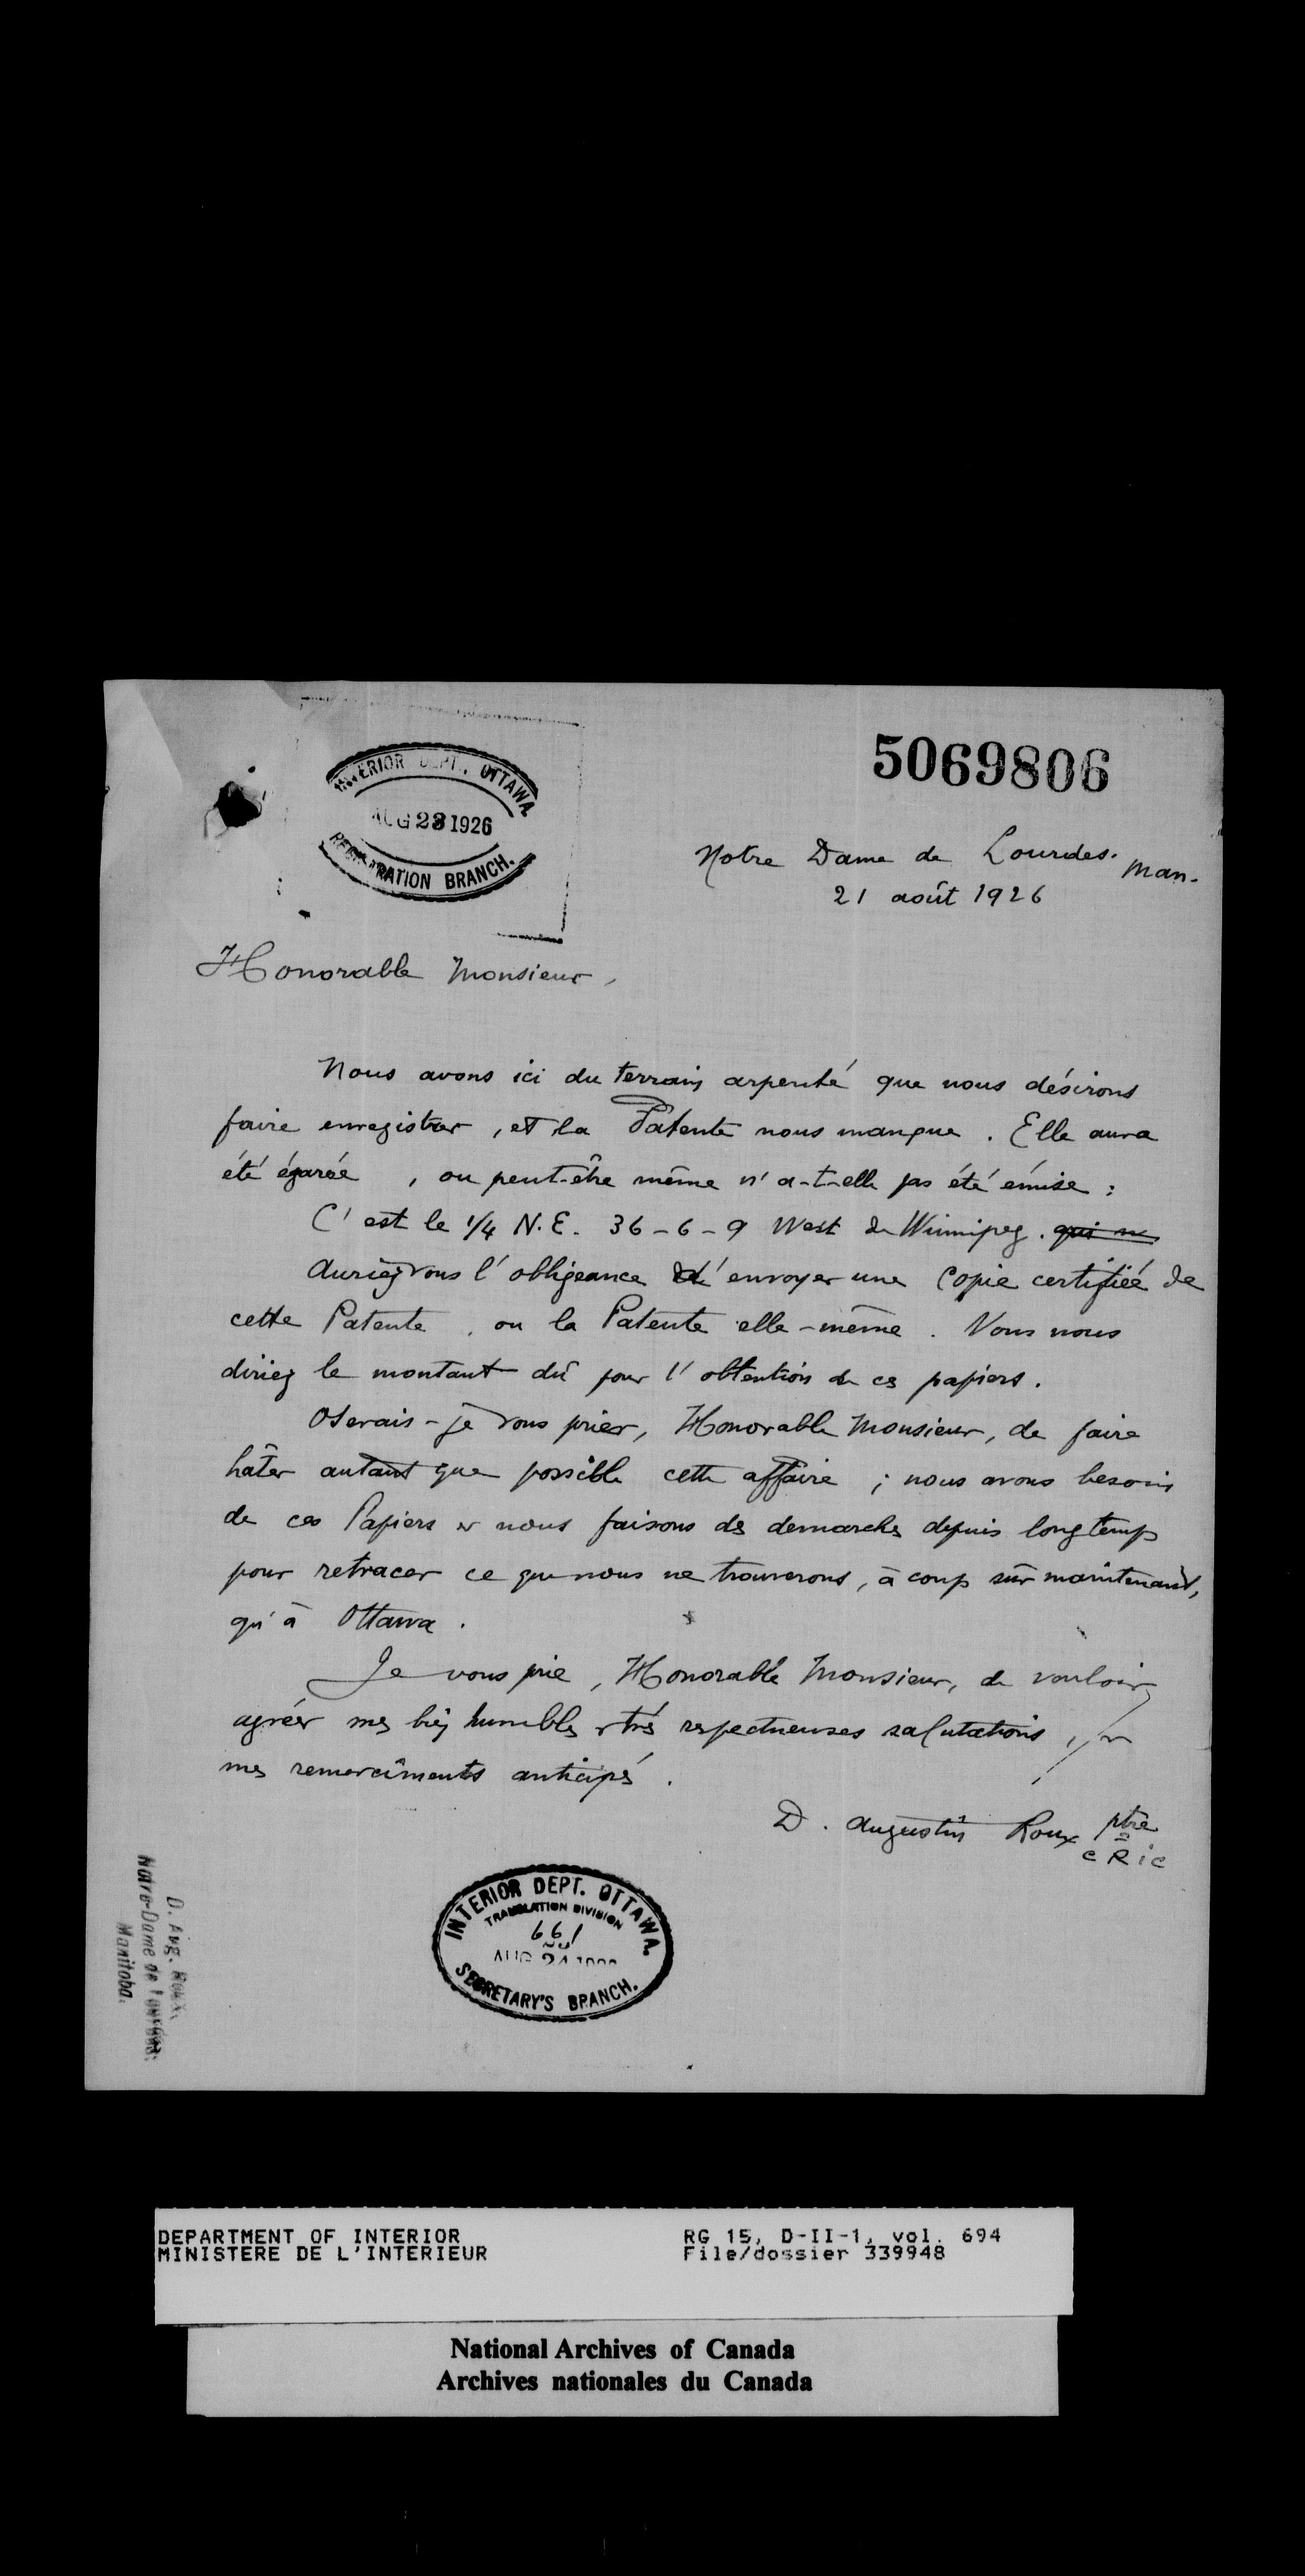 INTERIOR DEPT. OTTAWA
AUG 23 1926
REGISTRATION BRANCH.
5069806
Notre Dame de Lourdes. Man.
21 août 1926
Honorable Monsieur,
Nous avons ici du terrain arpenté que nous désirons
faire enregistrer, et la Patente nous manque. Elle aura
été égarée, ou peut-être même n'a-t-elle pas été émise :
C'est le 1/4 N.E. 36-6-9 West de Winnipeg. qui ne
Auriez vous l'obligeance d'envoyer une Copie certifiée de
cette Patente, ou la Patente elle-même. Vous nous
diriez le montant dû pour l'obtention de ces papiers.
Oserais-je vous prier, Honorable Monsieur, de faire
hâter autant que possible cette affaire ; nous avons besoin
de ces Papiers et nous faisons des demarches depuis longtemps
pour retracer ce que nous ne trouverons, à coup sûr maintenant,
qu'à Ottawa.
Je vous prie, Honorable Monsieur, de vouloir
agréer mes bien humbles et très respectueuses salutations,
mes remerciments anticipés.
D. Augustin Roux ptre
C R i C
D. Aug. Roux,
Notre-Dame de Lourdes,
Manitoba.
INTERIOR DEPT. OTTAWA.
TRANSLATION DIVISION
661
AUG 24
SECRETARY'S BRANCH.
DEPARTMENT OF INTERIOR
MINISTERE DE L'INTERIEUR
RG 15, D-II-1, vol. 694
File/dossier 339948
National Archives of Canada
Archives nationales du Canada